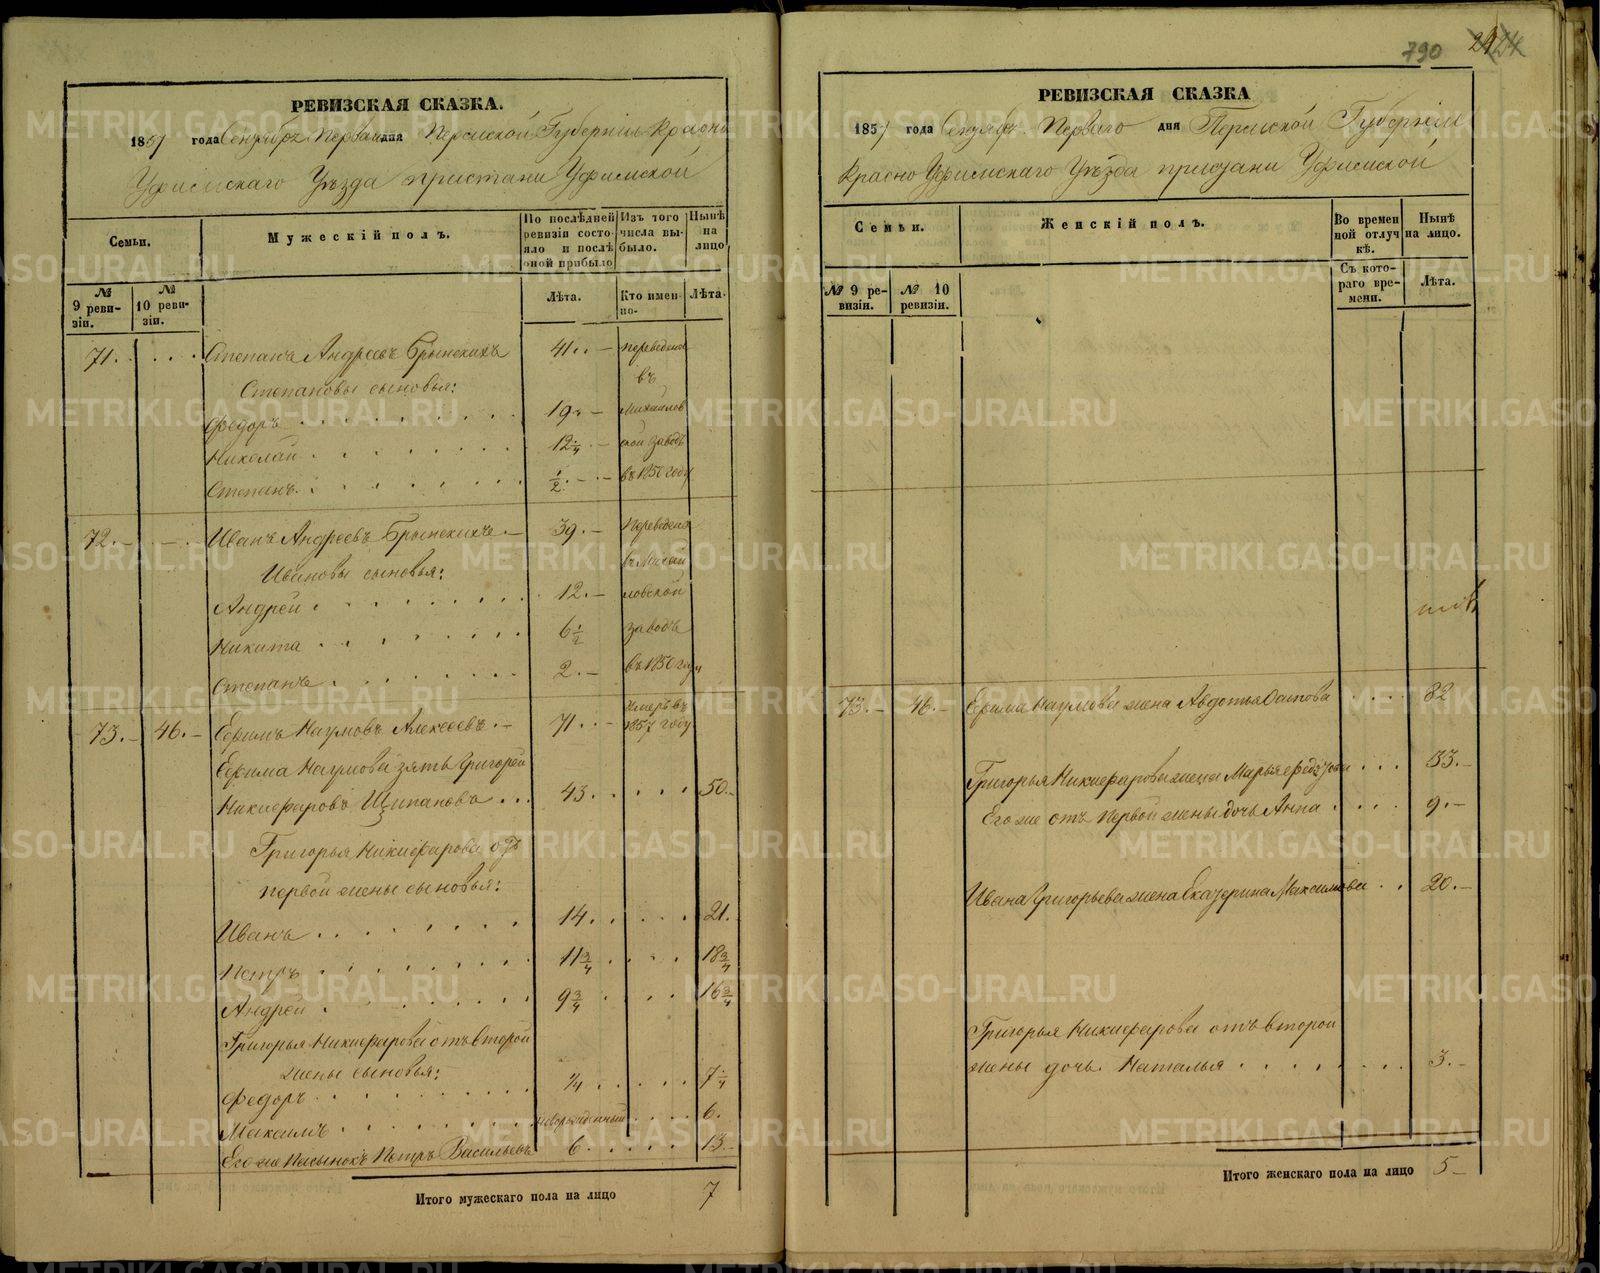 РЕВИЗСКАЯ СКАЗКА.
1857 года Сентября Перваго дня Пермской Губерніи Красно
Уфимскаго Уѣзда пристани Уфимской
Семьи.
Мужескій полъ.
По послѣдней ревизіи состояло и послѣ оной прибыло
Изъ того числа выбыло.
Нынѣ на лицо
№ 9 ревизіи.
№ 10 ревизіи.
Лѣта.
Кто именно.
Лѣта.
71. Степанъ Андреевъ Брынскихъ 41 переведены
Степановы сыновья: въ
Федоръ 19 Михайлов
Николай 12 1/4 ской заводъ
Степанъ 1/2 въ 1850 году
72. Иванъ Андреевъ Брынскихъ 39 Переведены
Ивановы сыновья: въ Михай
Андрей 12 ловской
Никита 6 1/2 заводъ
Степанъ 2 въ 1850 году
73. 46. Ефимъ Наумовъ Алексеевъ 71 Умеръ въ 1857 году
Ефима Наумова зять Григорей
Никифаровъ Щипановъ 43 50
Григорья Никифарова отъ
первой жены сыновья:
Иванъ 14 21
Петръ 11 3/4 18 3/4
Андрей 9 3/4 16 3/4
Григорья Никифарова отъ второй
жены сыновья:
Федоръ 1/4 7 1/4
Максимъ новорожденный 6.
Его же Пасынокъ Петръ Васильевъ 6 13
Итого мужескаго пола на лицо 7
790
24
РЕВИЗСКАЯ СКАЗКА
1857 года Сентября Перваго дня Пермской Губерніи
Красно Уфимскаго Уѣзда пристани Уфимской
Семьи.
Женскій полъ.
Во временной отлучкѣ.
Нынѣ на лицо.
№ 9 ревизіи.
№ 10 ревизіи.
Съ котораго времени.
Лѣта.
73. 46. Ефима Наумова жена Авдотья Осипова 82
Григорья Никифарова жена Марья Федотова 33
Его же отъ первой жены дочь Анна 9
Ивана Григорьева жена Екатерина Максимова 20
Григорья Никифарова отъ второй
жены дочь Наталья 3
Итого женскаго пола на лицо 5
METRIKI.GASO-URAL.RU